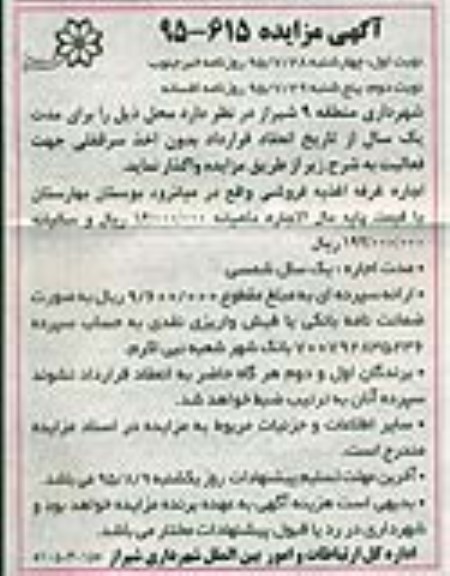 آگهی مزایده ۶۱۵-۹۵
نوبت اول: چهارشنبه ۹۵/۷/۲۸ روزنامه خبر جنوب
نوبت دوم: پنج شنبه ۹۵/۷/۲۹ روزنامه افسانه
شهرداری منطقه ۹ شیراز در نظر دارد محل ذیل را برای مدت
یک سال از تاریخ انعقاد قرارداد بدون اخذ سرقفلی جهت
فعالیت به شرح زیر از طریق مزایده واگذار نماید.
اجاره غرفه اغذیه فروشی واقع در میانرود بوستان بهارستان
با قیمت پایه مال الاجاره ماهیانه ریال و سالیانه
ریال
• مدت اجاره: یک سال شمسی
• ارائه سپرده ای به مبلغ مقطوع ۹/۶۰۰/۰۰۰ ریال به صورت
ضمانت نامه بانکی یا فیش واریزی نقدی به حساب سپرده
بانک شهر شعبه نبی اکرم.
• برندگان اول و دوم هر گاه حاضر به انعقاد قرارداد نشوند
سپرده آنان به ترتیب ضبط خواهد شد.
• سایر اطلاعات و جزئیات مربوط به مزایده در اسناد مزایده
مندرج است.
• آخرین مهلت تسلیم پیشنهادات روز یکشنبه ۹۵/۸/۹ می باشد.
• بدیهی است هزینه آگهی به عهده برنده مزایده خواهد بود و
شهرداری در رد یا قبول پیشنهادات مختار می باشد.
اداره کل ارتباطات و امور بین الملل شهرداری شیراز